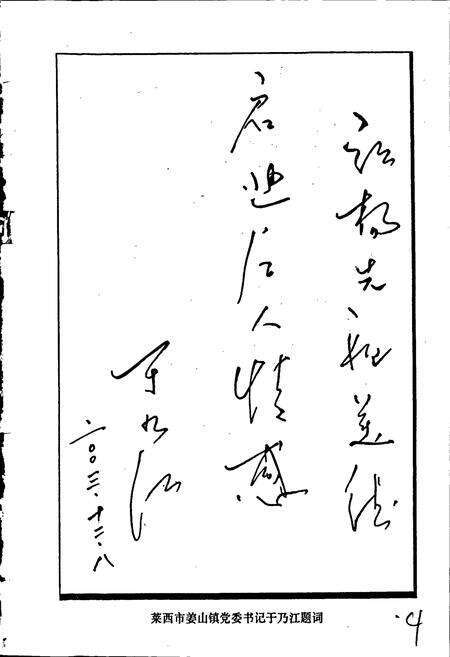 扬先祖美德
启迪后人情感
于乃江
二〇〇三.十二.八
莱西市姜山镇党委书记于乃江题词
4